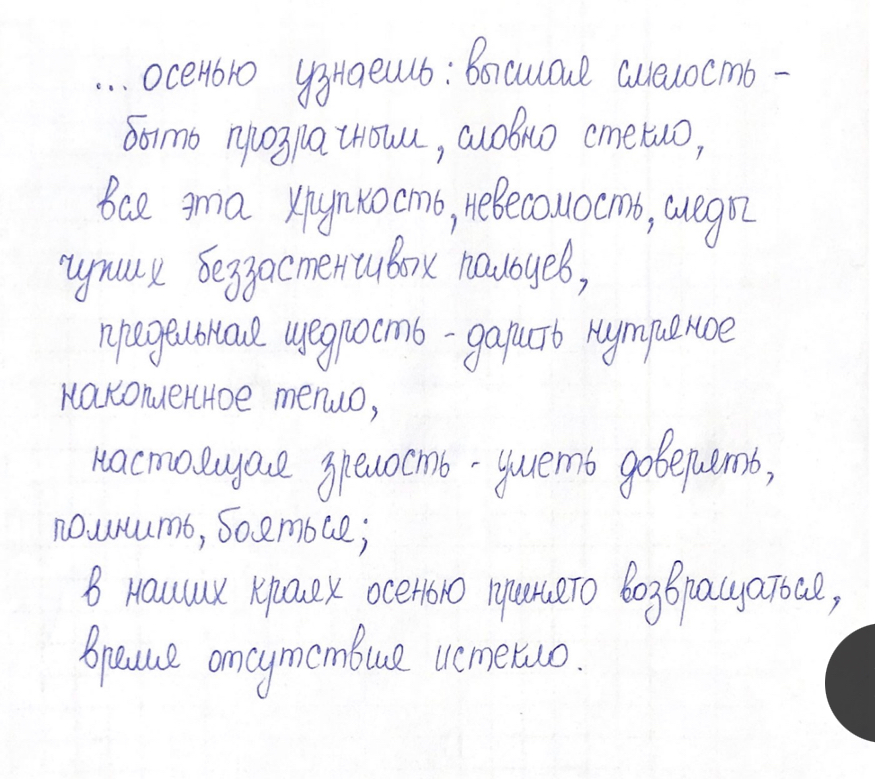 ...осенью узнаешь: высшая смелость -
быть прозрачным, словно стекло,
вся эта хрупкость, невесомость, следы
чужих беззастенчивых пальцев,
предельная щедрость - дарить нутряное
накопленное тепло,
настоящая зрелость - уметь доверять,
помнить, бояться;
в наших краях осенью принято возвращаться,
время отсутствия истекло.